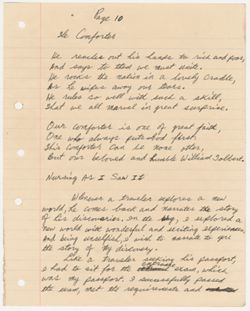 Page 10
The Comforter
He reaches out his hands to rich and poor,
And says to thee we must unite.
He rocks the nation in a lovely cradle,
As he wipes away our tears.
He rules so well with such a skill,
That we all marvel in great surprise.
Our Comforter is one of great faith,
One who always puts God first.
This Comforter can be none other,
But our beloved and humble William Tolbert.
Nursing As I Saw It
Whenever a traveler explores a new
world, he comes back and narrates the story
of his discoveries. In the I explored a
new world with wonderful and exciting experiences,
And being unselfish, I wish to narrate to you
the story of my discovery.
Like a traveler seeking his passport,
I had to sit for the entrance exam, which
was my passport. I successfully passed
the exam, met the requirements and